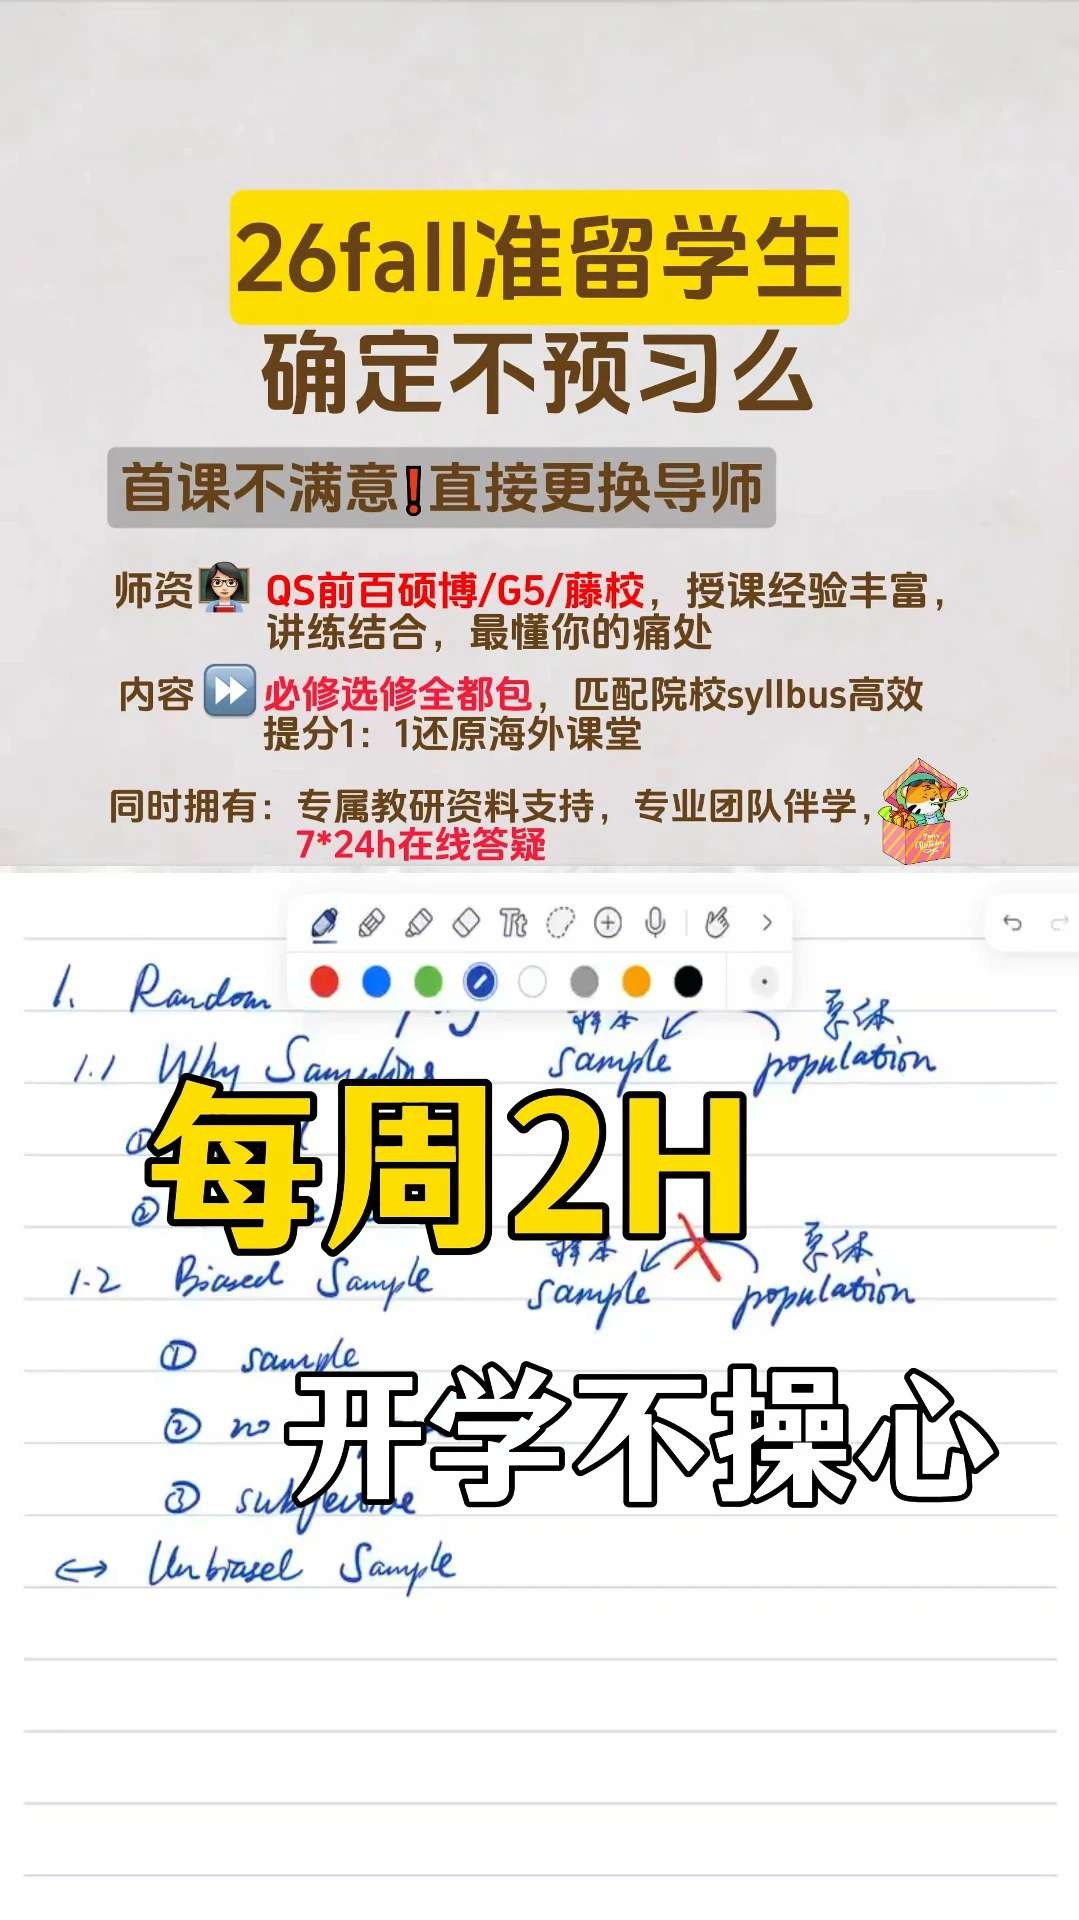 26fall准留学生
确定不预习么
首课不满意❗直接更换导师
师资 QS前百硕博/G5/藤校，授课经验丰富，
讲练结合，最懂你的痛处
内容 必修选修全都包，匹配院校syllbus高效
提分1：1还原海外课堂
同时拥有：专属教研资料支持，专业团队伴学，
7*24h在线答疑
Tt
1. Random
样本 总体
1.1 Why Sampling sample population
①
每周2H
②
样本 总体
1.2 Biased Sample sample population
① sample
② no
开学不操心
③ subjective
↔ Unbiased Sample